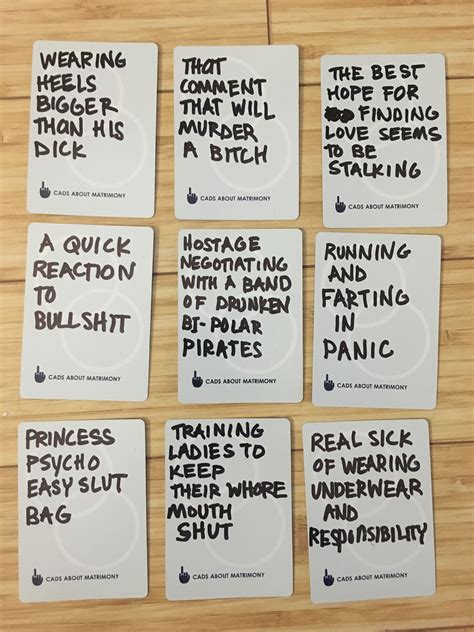 WEARING
HEELS
BIGGER
THAN HIS
DICK
CADS ABOUT MATRIMONY
THAT
COMMENT
THAT WILL
MURDER
A BITCH
CADS ABOUT MATRIMONY
THE BEST
HOPE FOR
FINDING
LOVE SEEMS
TO BE
STALKING
CADS ABOUT MATRIMONY
A QUICK
REACTION
TO
BULLSHIT
CADS ABOUT MATRIMONY
HOSTAGE
NEGOTIATING
WITH A BAND
OF DRUNKEN
BI-POLAR
PIRATES
CADS ABOUT MATRIMONY
RUNNING
AND
FARTING
IN
PANIC
CADS ABOUT MATRIMONY
PRINCESS
PSYCHO
EASY SLUT
BAG
CADS ABOUT MATRIMONY
TRAINING
LADIES TO
KEEP
THEIR WHORE
MOUTH
SHUT
CADS ABOUT MATRIMONY
REAL SICK
OF WEARING
UNDERWEAR
AND
RESPONSIBILITY
CADS ABOUT MATRIMONY